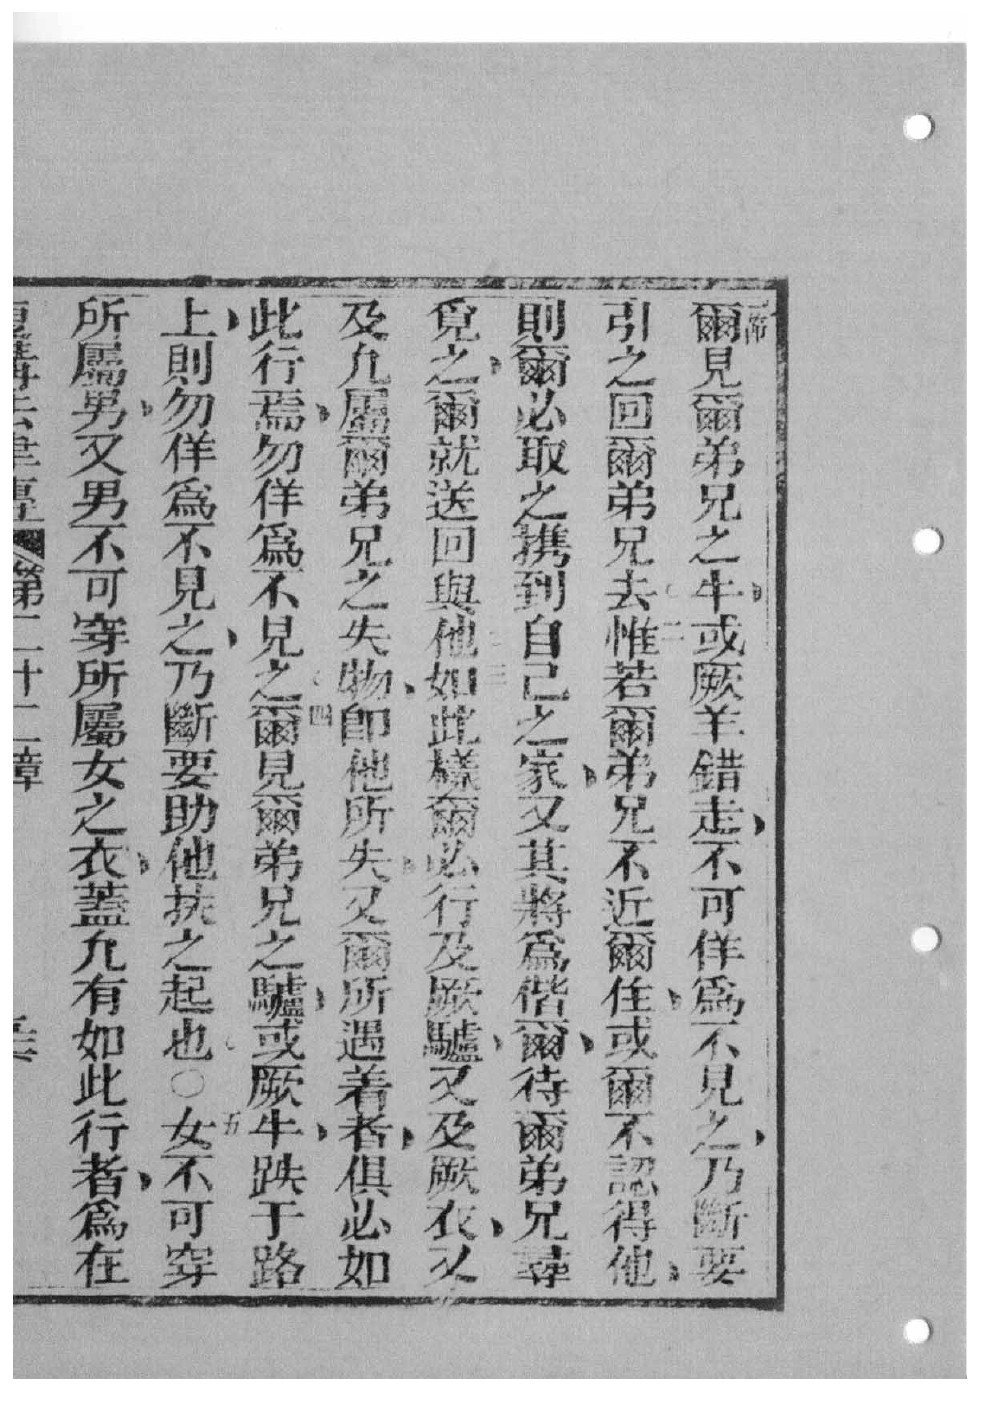 一節
爾見爾弟兄之牛、或厥羊錯走、不可佯爲不見之、乃斷要
引之回爾弟兄去。二惟若爾弟兄不近爾住、或爾不認得他、
則爾必取之携到自己之家、又其將爲偕爾、待爾弟兄尋
覓之、爾就送回與他。三如此樣爾必行及厥驢、又及厥衣、又
及凢屬爾弟兄之失物、卽他所失、又爾所遇着者、俱必如
此行焉、勿佯爲不見之。四爾見爾弟兄之驢、或厥牛、跌于路
上、則勿佯爲不見之、乃斷要助他扶之起也。○五女不可穿
所屬男、又男不可穿所屬女之衣、蓋凢有如此行者、爲在
復講法律傳 第二十二章